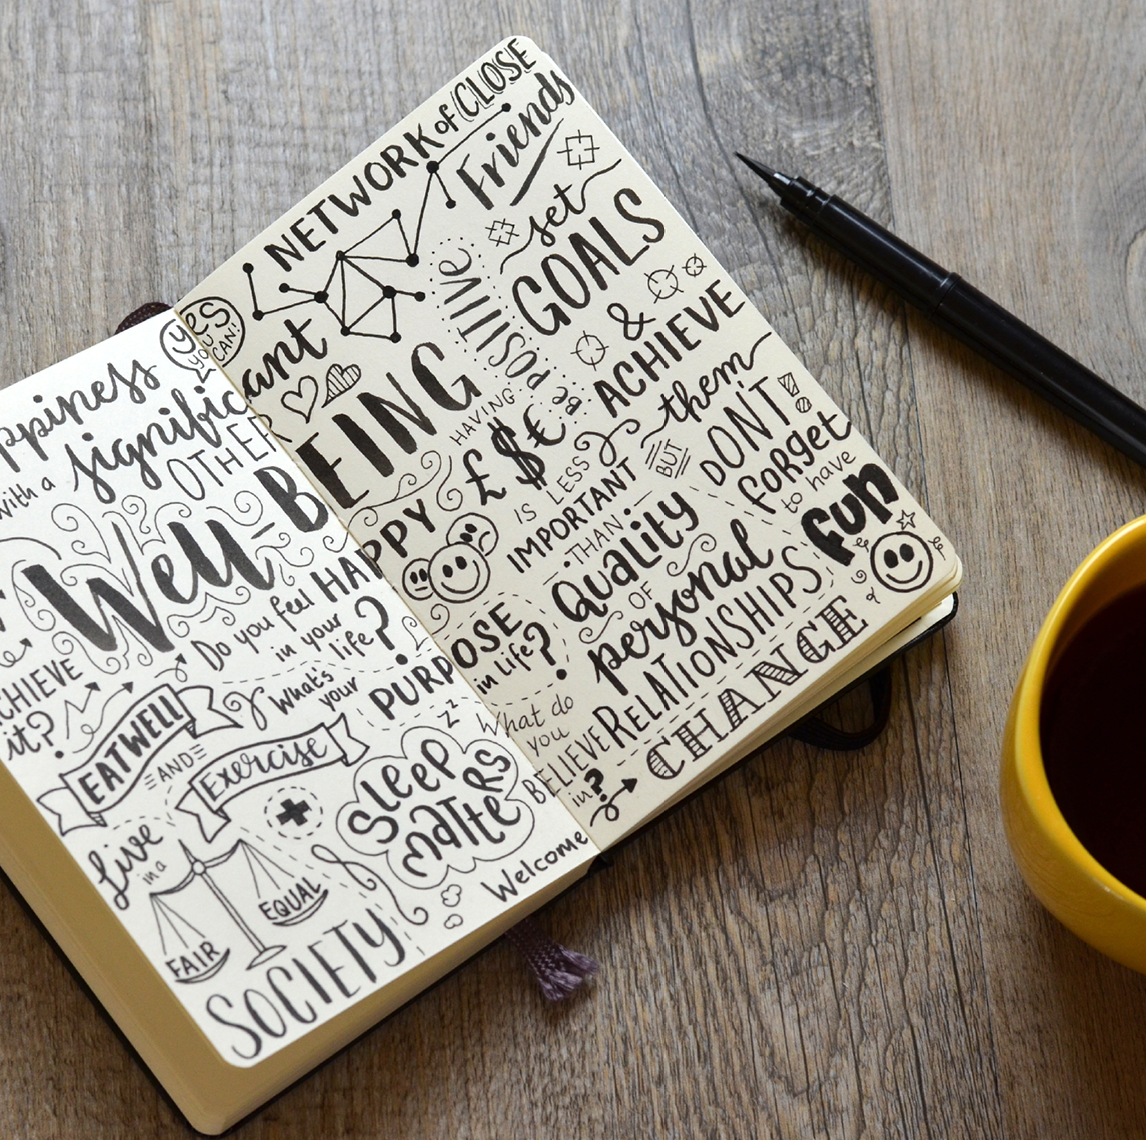 YES
YOU
CAN!
ppiness
with a
significant
OTHER
Well-BEING
Do you feel HAPPY
in your
life?
CHIEVE
it?
What's
your
PURPOSE
in life?
EAT WELL
=AND=
Exercise
Sleep
matters
z z
Live
in a
FAIR
EQUAL
SOCIETY
Welcome
CHANGE
What do
you
BELIEVE
in?
NETWORK of CLOSE
Friends
set
GOALS
&
ACHIEVE
them
Be POSITIVE
HAVING
£$€
IS LESS
IMPORTANT
THAN
Quality
OF
personal
RELATIONSHIPS
BUT
DON'T!
forget
to have
fun